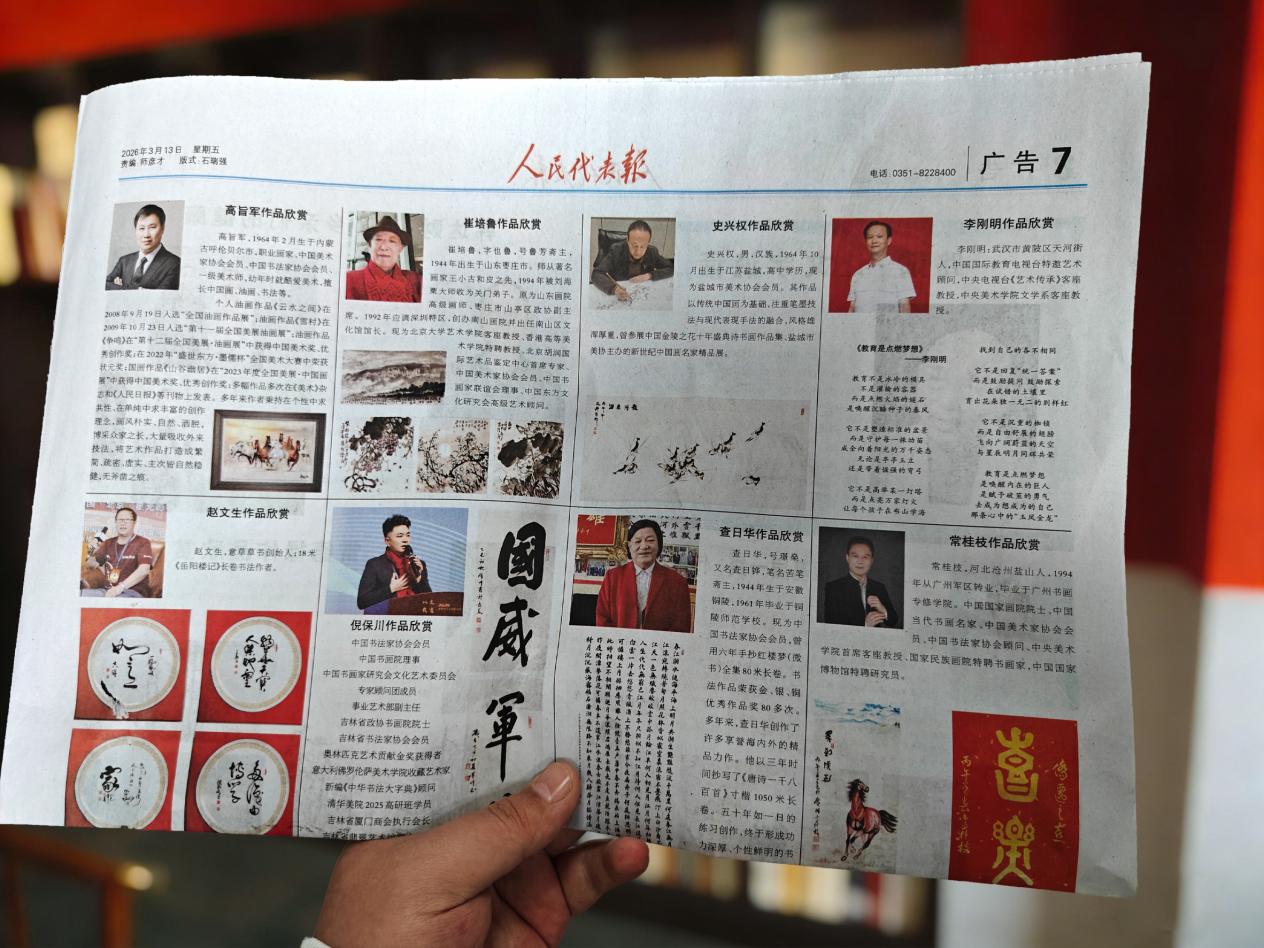 2026年3月13日 星期五
责编 师彦才 版式:石瑞强
人民代表報
电话:0351-8228400
广告 7
高旨军作品欣赏
高旨军,1964年2月生于内蒙
古呼伦贝尔市,职业画家、中国美术
家协会会员、中国书法家协会会员、
一级美术师,幼年时就酷爱美术,擅
长中国画、油画、书法等。
个人油画作品《云水之间》在
2008年9月19日入选“全国油画作品展”;油画作品《雪村》在
2009年10月23日入选“第十一届全国美展油画展”;油画作品
《争鸣》在“第十二届全国美展·油画展”中获得中国美术奖、优
秀创作奖;在2022年“盛世东方·墨儒杯”全国美术大赛中荣获
状元奖;国画作品《山谷幽居》在“2023年度全国美展·中国画
展”中获得中国美术奖、优秀创作奖;多幅作品多次在《美术》杂
志和《人民日报》等刊物上发表。多年来作者秉持在个性中求
共性、在单纯中求丰富的创作
理念,画风朴实、自然、洒脱,
博采众家之长,大量吸收外来
技法,将艺术作品打造成繁
简、疏密、虚实、主次皆自然稳
健,无斧凿之痕。
崔培鲁作品欣赏
崔培鲁,字也鲁,号鲁芳斋主,
1944年出生于山东枣庄市。师从著名
画家王小古和皮之先,1994年被刘海
粟大师收为关门弟子。原为山东画院
高级画师、枣庄市山亭区政协副主
席。1992年应调深圳特区,创办南山画院并出任南山区文
化馆馆长。现为北京大学艺术学院客座教授、香港高等美
术学院特聘教授、北京胡润国
际艺术品鉴定中心首席专家、
中国美术家协会会员、中国书
画家联谊会理事、中国东方文
化研究会高级艺术顾问。
史兴权作品欣赏
史兴权,男,汉族,1964年10
月出生于江苏盐城,高中学历,现
为盐城市美术协会会员。其作品
以传统中国画为基础,注重笔墨技
法与现代表现手法的融合,风格雄
浑厚重,曾参展中国金陵之花十年盛典诗书画作品集、盐城市
美协主办的新世纪中国画名家精品展。
李刚明作品欣赏
李刚明:武汉市黄陂区天河街
人,中国国际教育电视台特邀艺术
顾问,中央电视台《艺术传承》客座
教授,中央美术学院文学系客座教
授。
《教育是点燃梦想》
——李刚明
教育不是冰冷的模具
不是灌输的容器
而是点燃火焰的燧石
是唤醒沉睡种子的春风
它不是塑造标准的盆景
而是守护每一株幼苗
成全向着阳光的万千姿态
无论是亭亭玉立
还是带着倔强的弯弓
它不是高举某一灯塔
而是点亮万家灯火
让每个孩子在书山学海
找到自己的各不相同
它不是回复“统一答案”
而是鼓励提问 鼓励探索
在试错的土壤里
育出花朵独一无二的别样红
它不是沉重的枷锁
而是自由舒展的翅膀
飞向广阔蔚蓝的天空
与星辰明月同辉共荣
教育是点燃梦想
是唤醒内在的巨人
是赋予破茧的勇气
去成为想成为的自己
那条心中的“玉凤金龙”
赵文生作品欣赏
赵文生,意草草书创始人;18米
《岳阳楼记》长卷书法作者。
倪保川作品欣赏
中国书法家协会会员
中国书画院理事
中国书画家研究会文化艺术委员会
专家顾问团成员
事业艺术部副主任
吉林省政协书画院院士
吉林省书法家协会会员
奥林匹克艺术贡献金奖获得者
意大利佛罗伦萨美术学院收藏艺术家
新编《中华书法大字典》顾问
清华美院2025高研班学员
吉林省厦门商会执行会长
國威軍
查日华作品欣赏
查日华,号璟燊,
又名查日铧,笔名苦笔
斋主,1944年生于安徽
铜陵,1961年毕业于铜
陵师范学校。现为中
国书法家协会会员,曾
用六年手抄红楼梦(微
书)全集80米长卷。书
法作品荣获金、银、铜
优秀作品奖80多次。
多年来,查日华创作了
许多享誉海内外的精
品力作。他以三年时
间抄写了《唐诗一千八
百首》寸楷1050米长
卷。五十年如一日的
练习创作,终于形成功
力深厚、个性鲜明的书
常桂枝作品欣赏
常桂枝,河北沧州盐山人,1994
年从广州军区转业,毕业于广州书画
专修学院。中国国家画院院士、中国
当代书画名家,中国美术家协会会
员、中国书法家协会顾问、中央美术
学院首席客座教授、国家民族画院特聘书画家,中国国家
博物馆特聘研究员。
喜樂